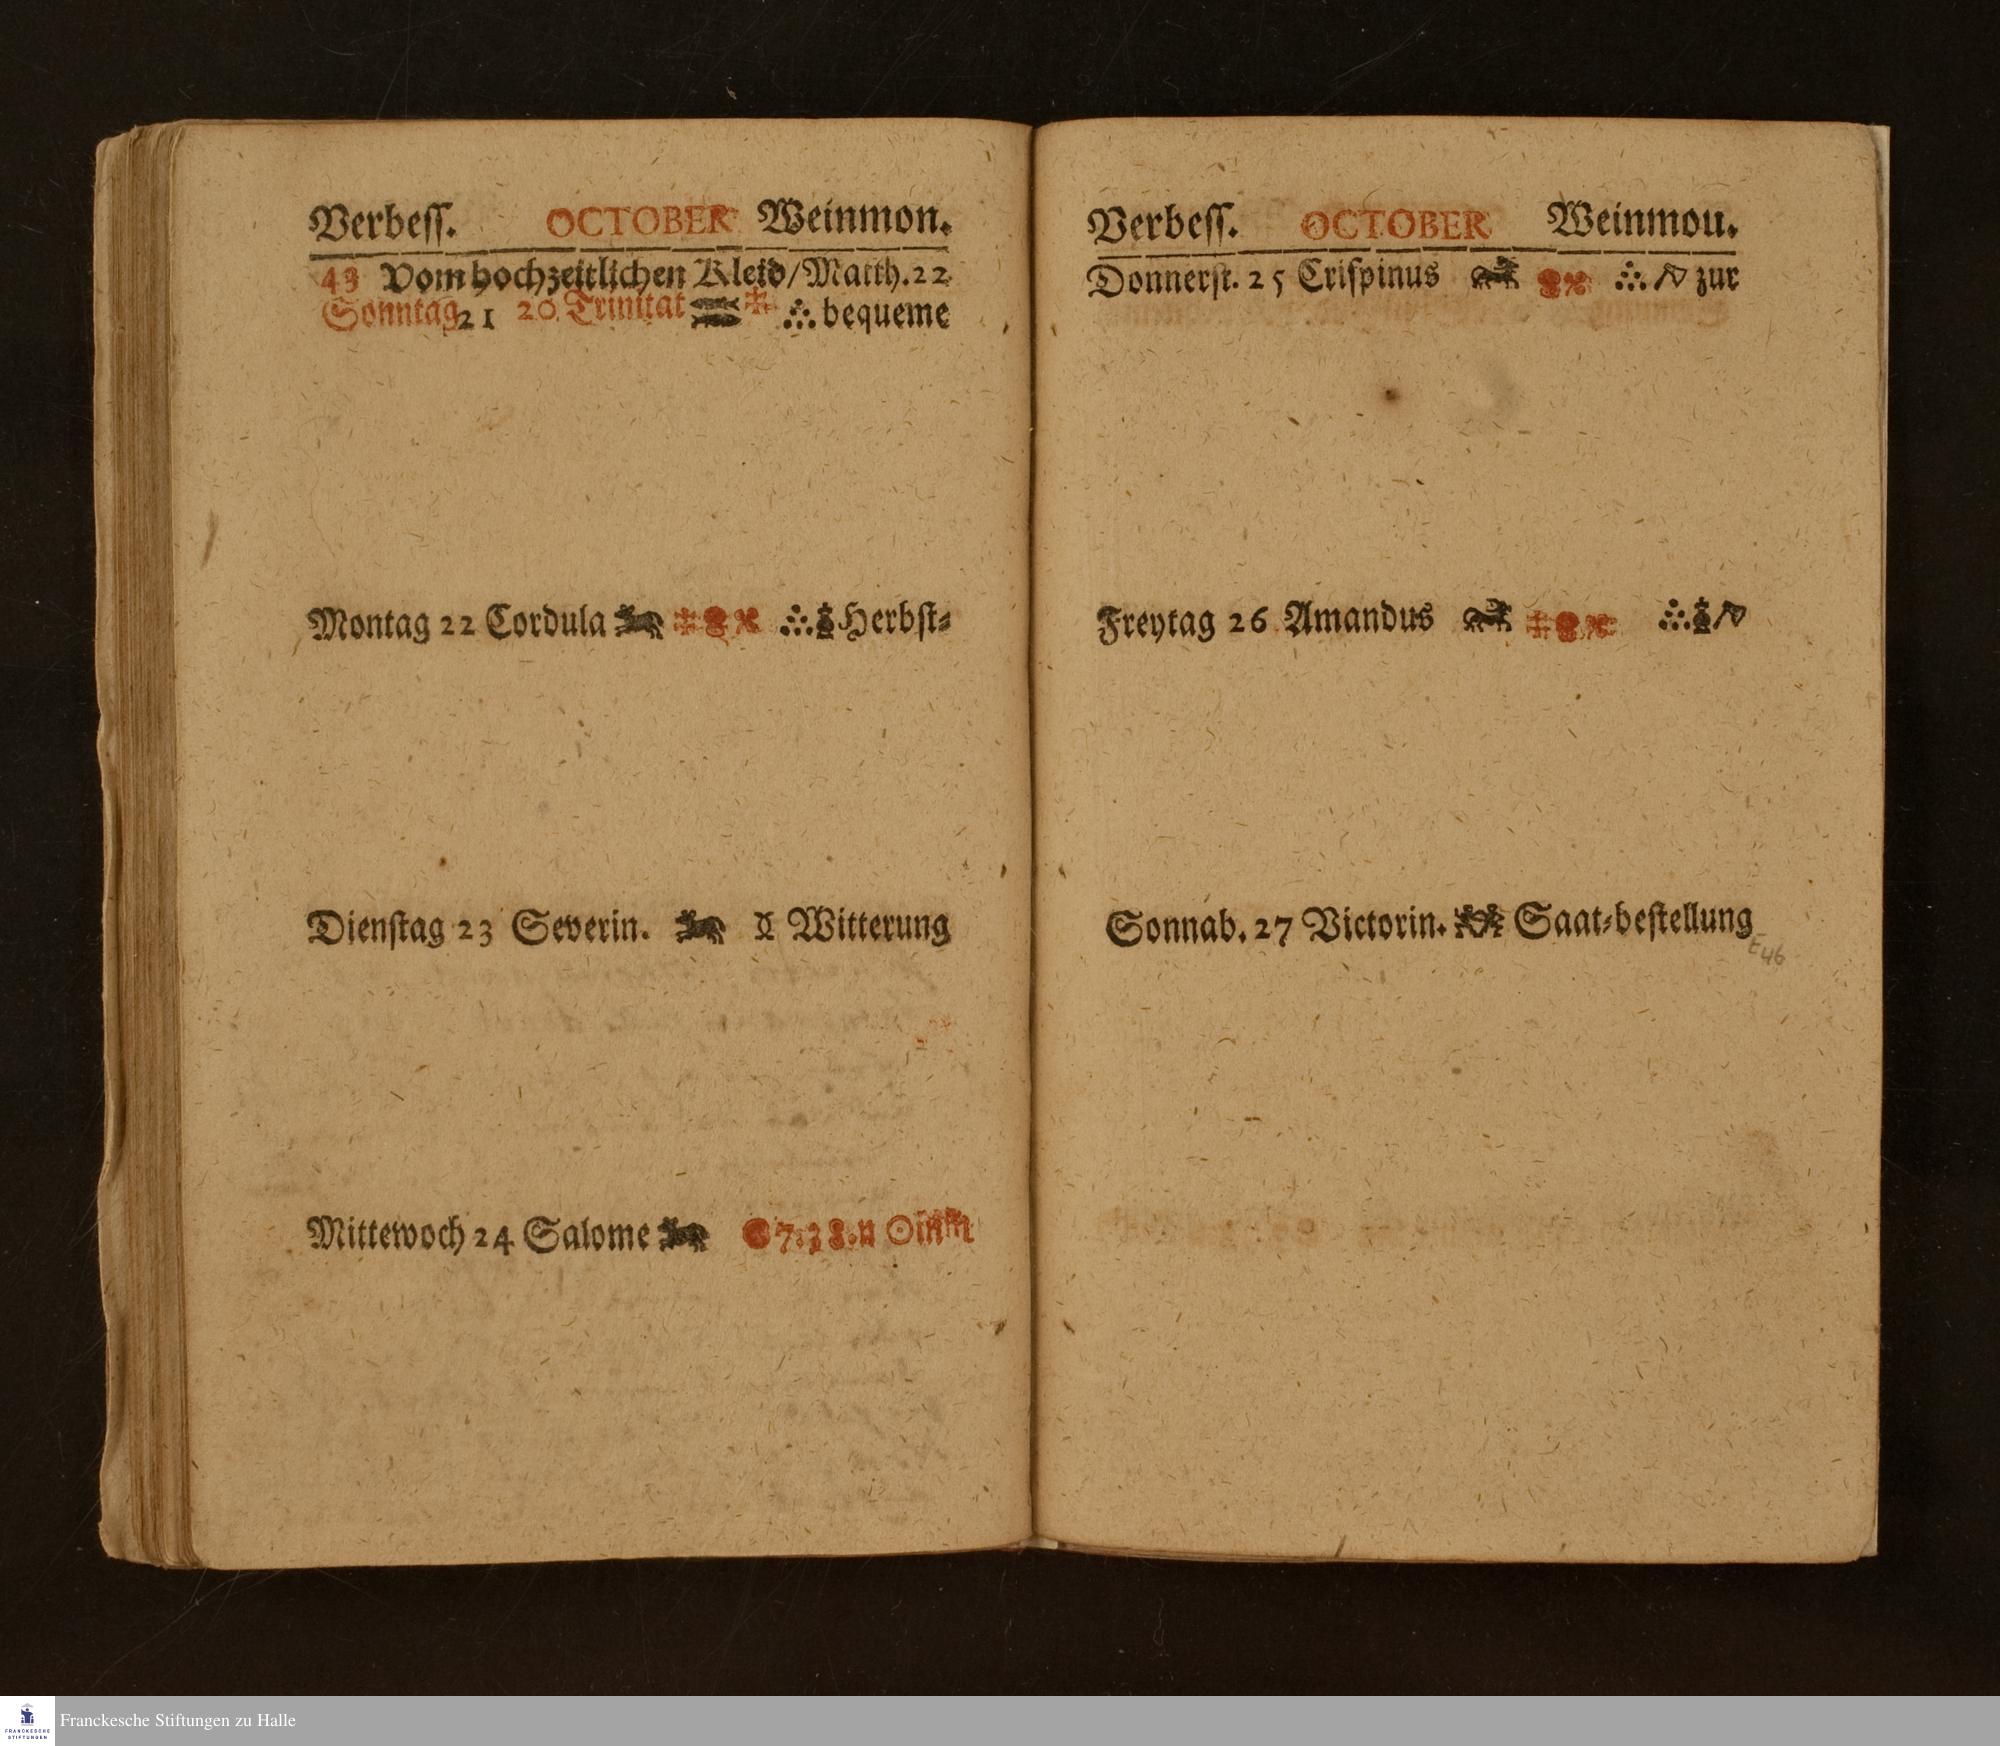 Verbeſſ. OCTOBER Weinmon.
43 Vom hochzeitlichen Kleid/Matth. 22
Sonntag 21 20 Trinitat bequeme
Montag 22 Cordula Herbſt⸗
Dienſtag 23 Severin. Witterung
Mittewoch 24 Salome 7.38.n ☉ in
Verbeſſ. OCTOBER Weinmou.
Donnerſt. 25 Criſpinus zur
Freytag 26 Amandus
Sonnab. 27 Victorin. Saat⸗beſtellung
46
Franckesche Stiftungen zu Halle
FRANCKESCHE
STIFTUNGEN